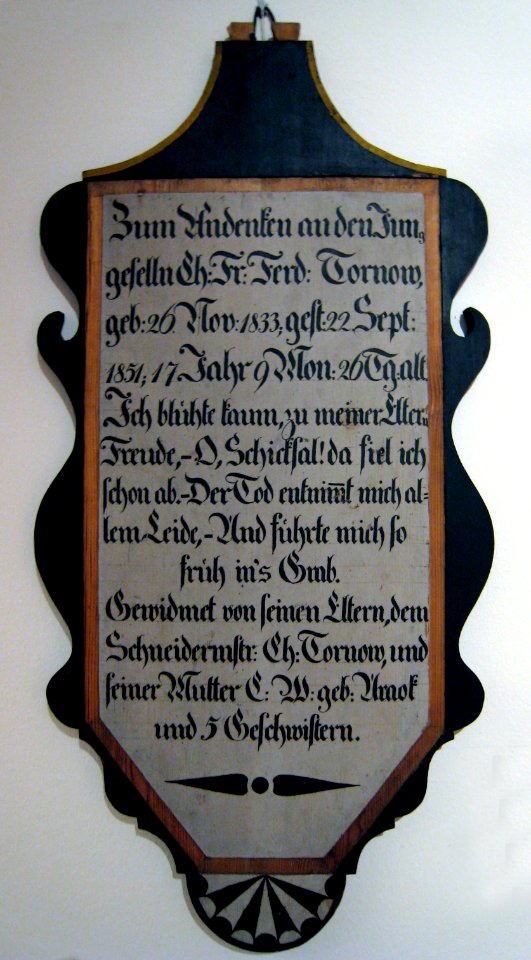 Zum Andenken an den Jung
geselln Ch: Fr: Ferd: Tornow,
geb: 26 Nov: 1833, gest: 22 Sept:
1851; 17 Jahr 9 Mon: 26 Tg. alt.
Ich blühte kaum, zu meiner Eltern
Freude,- O, Schicksal! da fiel ich
schon ab.- Der Tod entnim̅t mich al=
lem Leide,- Und führte mich so
früh in's Grab.
Gewidmet von seinen Eltern, dem
Schneidermstr: Ch: Tornow, und
seiner Mutter C: W: geb:
und 5 Geschwistern.